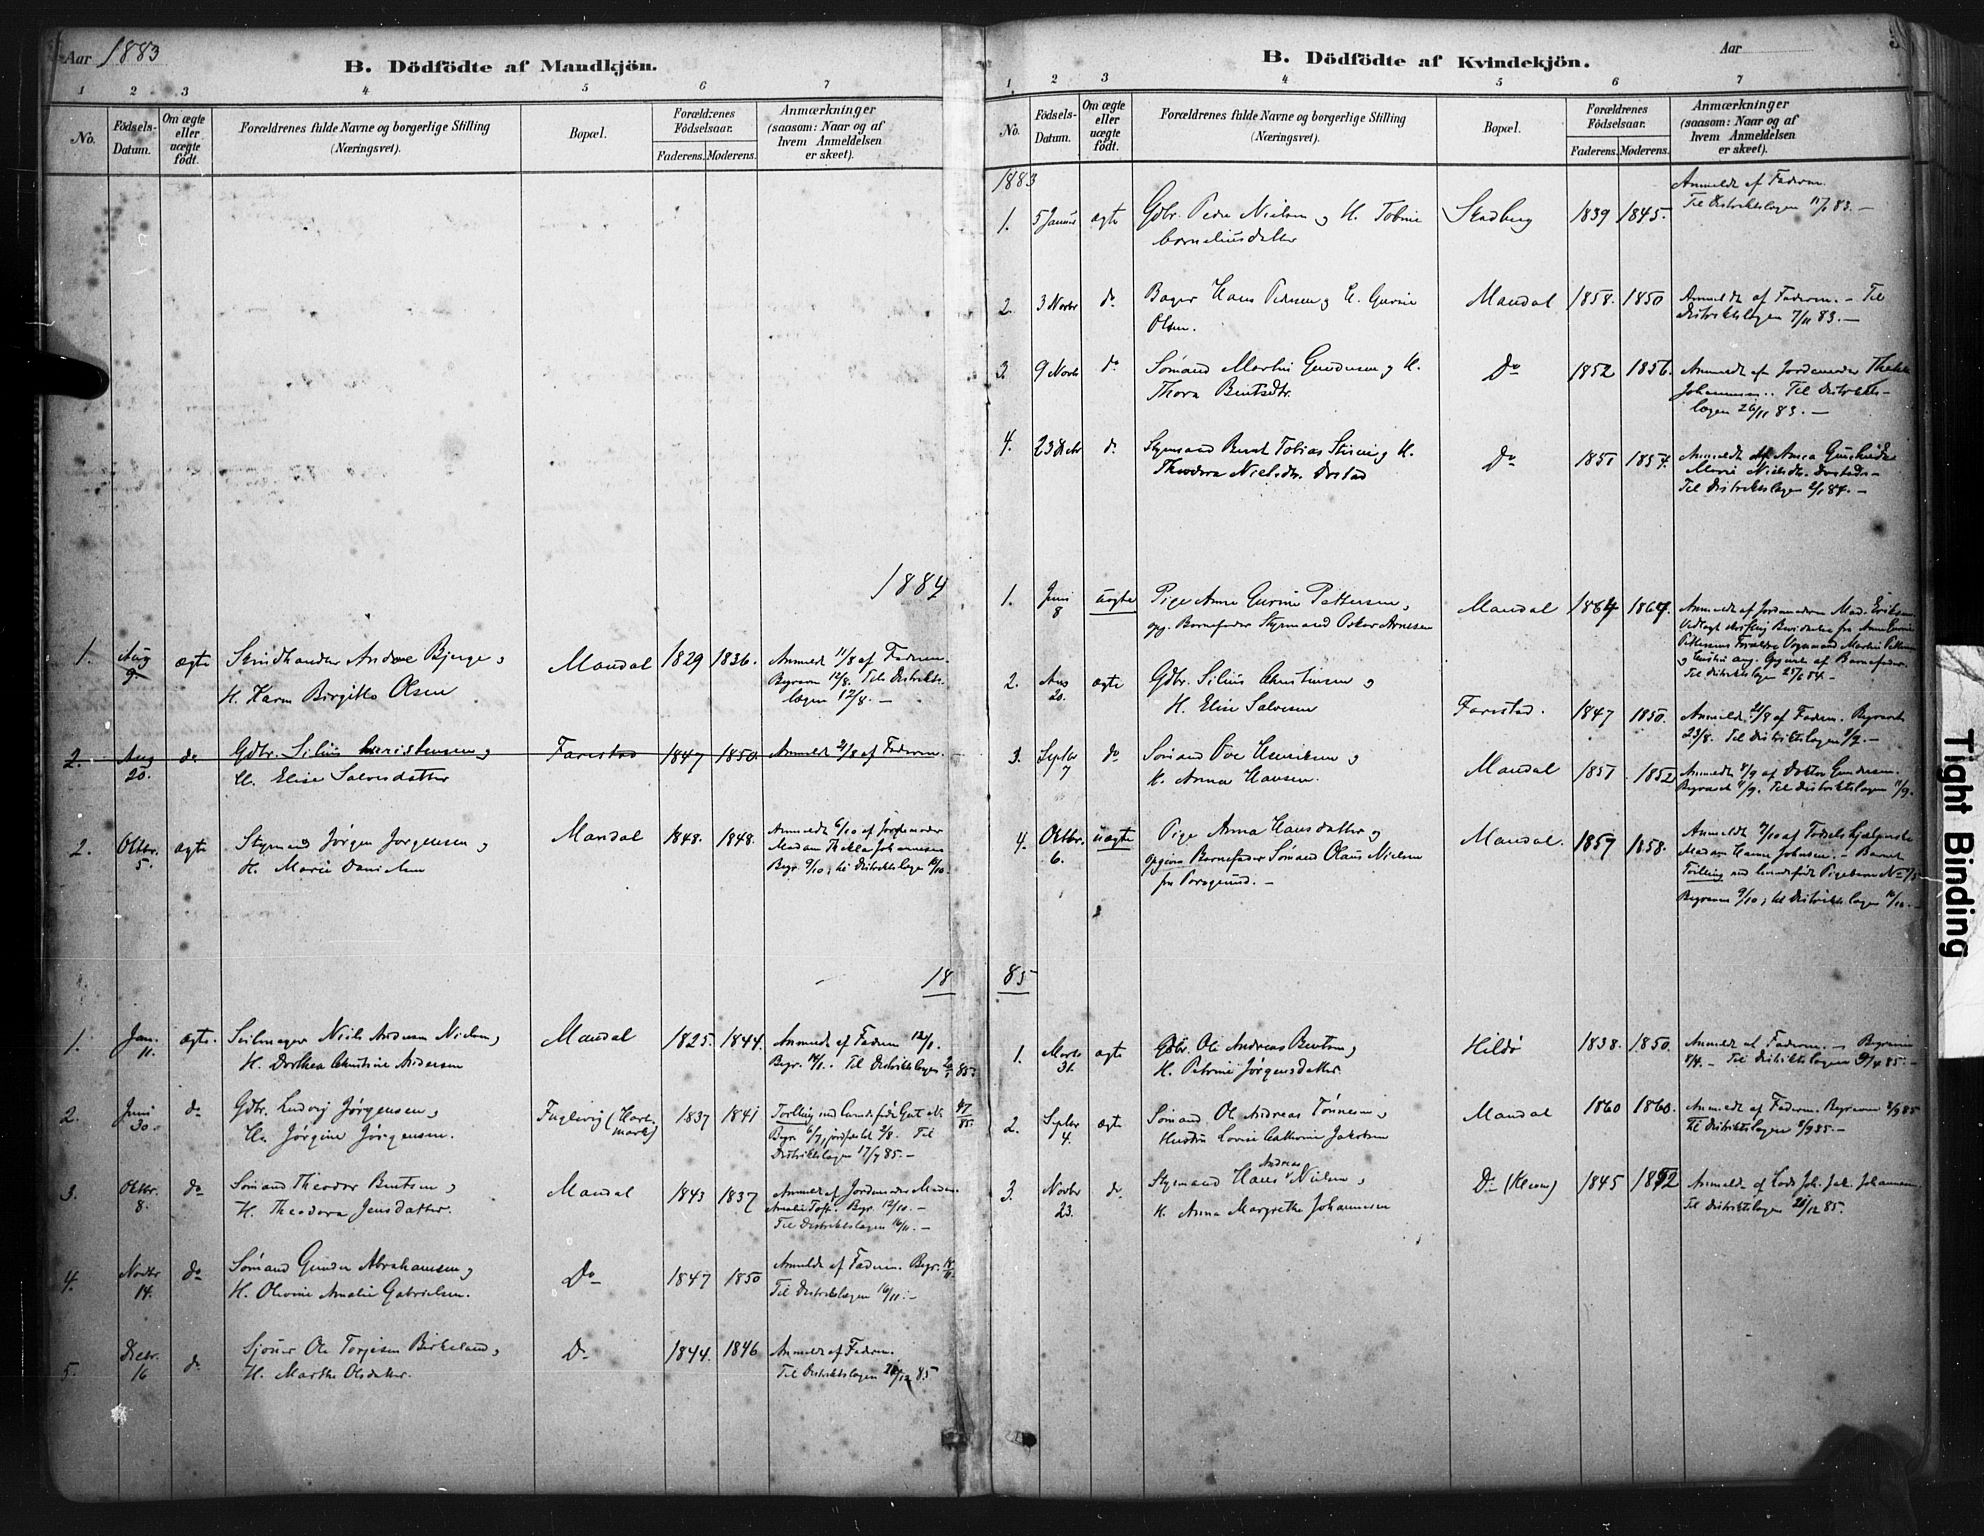 Aar 1883
B. Dödfödte af Mandkjön.
1 2 3 4 5 6 7
No.
Födsels-Datum.
Om ægte eller uægte födt.
Forældrenes fulde Navne og borgerlige Stilling (Næringsvei).
Bopæl.
Forældrenes Födselsaar.
Faderens. Moderens.
Anmærkninger (saasom: Naar og af hvem Anmeldelsen er skeet).
1884
1. Aug 9 ægte Andr. Bjerge, Mandal 1829 1836. Anmeldt 11/8 af Faderen.
H. Karen Birgitte Olsen Begraven 12/8. Til Distrikts-
lægen 12/8. —
2. Aug 20. do Gdbr. Silius Christensen og Farestad 1847 1850 Anmeldt 21/8 af Faderen.
H. Elise Salvesdatter
2. Oktbr. 5. ægte Styrmand Jørgen Jørgensen og Mandal 1848. 1848. Anmeldt 6/10 af Jordemoder
H. Marie Danielsen Madam Thekla Johannesen
Begr. 9/10, til Distriktslægen 10/10.
18
1. Jan. 11. ægte. Seilmager Niels Andreas Nielsen, Mandal 1825. 1844. Anmeldt af Faderen 12/1.
H. Dorthea Christine Andersen Begr. 14/1. Til Distriktslægen
2. Juni 30. do Gdbr. Ludvig Jørgensen, Fuglevig (Hart- 1837 1841 Tvilling med levendefødt Gut No 47/85.
H. Jørgine Jørgensen. mark) Begr. 6/7, jordfæstet 2/8. Til
Distriktslægen 17/7 85. —
3. Oktbr. 8. do Sømand Theodor Bentsen, Mandal 1843 1837 Anmeldt af Jordemoder Madam
H. Theodora Jensdatter. Amalie Toft. Begr. 12/10. —
Til Distriktslægen 16/11. —
4. Novbr 14. do Sømand Gunder Abrahamsen, Do 1847 1850 Anmeldt af Faderen. Begr.
H. Olevine Amalie Gabrielsen. Til Distriktslægen 16/11. —
5. Decbr. 16 do Ole Torjesen Birkeland, Do 1844. 1846 Anmeldt af Faderen.
H. Marthe Olsdatter. Til Distriktslægen 85
B. Dödfödte af Kvindekjön.
Aar
1. 2 3 4 5 6 7
No.
Födsels-Datum.
Om ægte eller uægte födt.
Forældrenes fulde Navne og borgerlige Stilling (Næringsvei).
Bopæl.
Forældrenes Födselsaar.
Faderens. Moderens.
Anmærkninger (saasom: Naar og af hvem Anmeldelsen er skeet).
1883
1. 5 Januar ægte Gdbr. Peder Nielsen og H. Tobine Skadberg 1839 1845. Anmeldt af Faderen.
Corneliusdatter Til Distriktslægen 11/1 83. —
2. 3 Novbr do Bager Hans Pedersen og H. Gurine Mandal 1858. 1850 Anmeldt af Faderen. — Til
Olsen. Distriktslægen 7/11 83. —
3. 9 Novbr do Sømand Martin Gundersen og H. Do 1852 1856. Anmeldt af Jordemoder Thekla
Thora Bentsdtr. Johannesen. Til Distrikts-
lægen 26/11 83. —
4. 23 Decbr do Styrmand Bernt Tobias og H. Do 1851 1857. Anmeldt af Anna
Theodora Nielsdtr. Marie Nielsdtr.
Til Distriktslægen 2/1 84. —
1. Juni 8 uægte Pige Anna Gurine Pettersen, Mandal 1864 1864. Anmeldt af Jordemoderen Mad. Eriksen
opg. Barnefader Styrmand Oskar Arnesen Vedlagt skriftlig fra Anne Gurine
Pettersens Forældre Martin Pettersen
og Hustru ang. Opgivelse af Barnefader.
Til Distriktslægen 84. —
2. Aug 20. ægte Gdbr. Silius Christensen og Farestad. 1847 1850. Anmeldt 21/8 af Faderen. Begravet
H. Elise Salvesen 23/8. Til Distriktslægen 2/9. —
3. Septbr 7 do Sømand Ove Henriksen og Mandal 1851. 1852 Anmeldt 8/9 af Doktor Gundersen.
H. Anna Hansen. Begravet 11/9. Til Distriktslægen 11/9.
4. Oktbr. 6. uægte Pige Anna Hansdatter og Mandal. 1857 1858. Anmeldt 7/10 af Fødselshjælperske
opgiven Barnefader Sømand Olaus Nielsen Madam Hanne Johnsen. — Barnet
fra Porsgrund. — Tvilling med levendefødt Pigebarn No
Begraven 9/10, til Distriktslægen 10/10. —
85
1. Marts 31. ægte Gdbr. Ole Andreas Bentsen, Hildø 1838. 1850. Anmeldt af Faderen. — Begraven
H. Petrine Jørgensdatter. 8/4. — Til Distriktslægen 9/4 85. —
2. Septbr 4. ægte Sømand Ole Andreas Tønnesen, Mandal 1860 1860. Anmeldt af Faderen. Begraven 8/9 85
Hustru Lovise Cathrine Jakobsen Til Distriktslægen 8/9 85. —
3. Novbr 23. do Styrmand Hans Andreas Nielsen, Do (Kleven) 1845 1852 Anmeldt af Lods Joh. Jak. Johannesen
H. Anna Margrethe Johannesen Til Distriktslægen 12 85.
Tight Binding